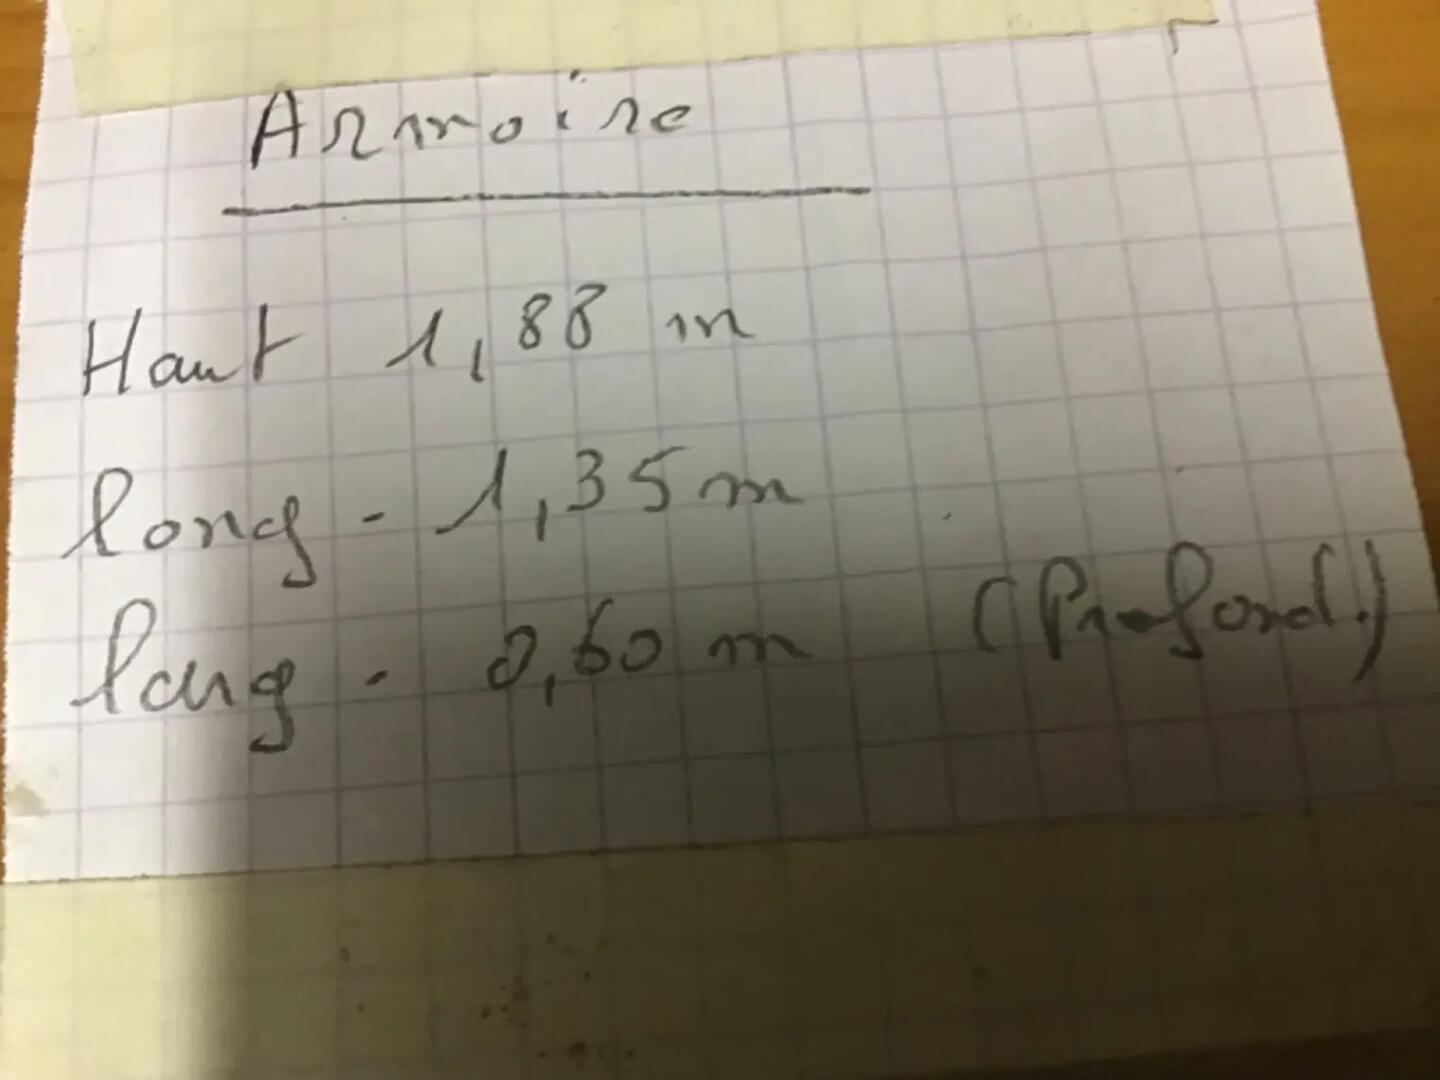 Armoire
Haut 1,88 m
long - 1,35 m
larg - 0,60 m (Profond.)